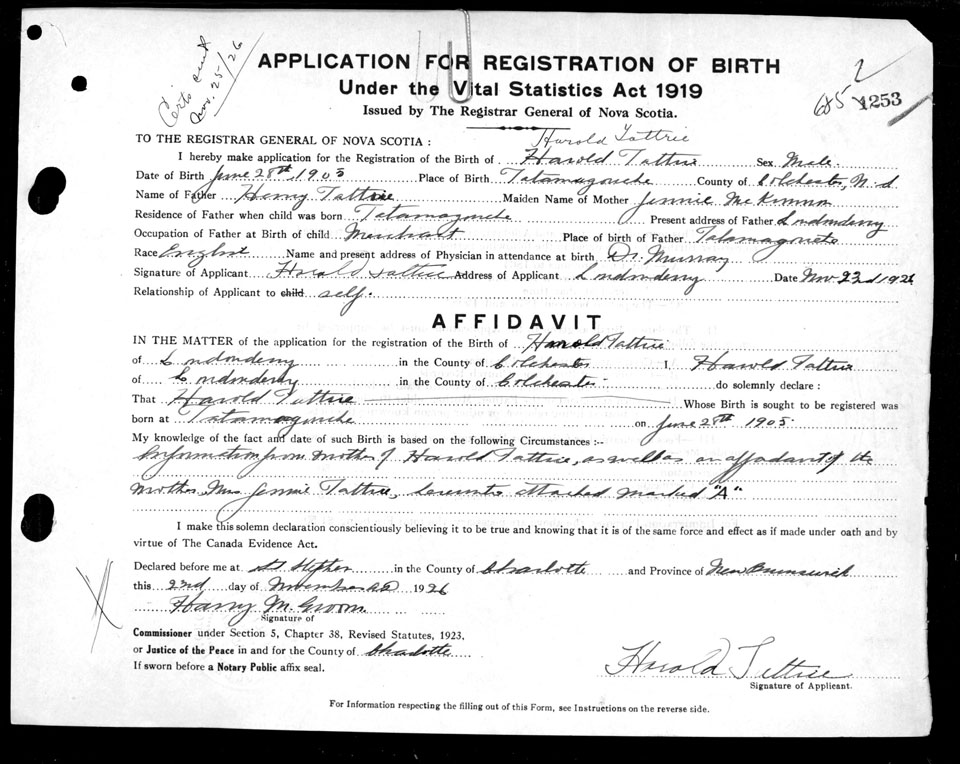 Certs sent
Nov. 25/26
APPLICATION FOR REGISTRATION OF BIRTH
Under the Vital Statistics Act 1919
Issued by The Registrar General of Nova Scotia.
2
685
1253
Harold Tattrie
TO THE REGISTRAR GENERAL OF NOVA SCOTIA :
I hereby make application for the Registration of the Birth of Harold Tattrie Sex Male
Date of Birth June 28th, 1905 Place of Birth Tatamagouche County of Colchester, N.S
Name of Father Henry Tattrie Maiden Name of Mother Jennie McKinnon
Residence of Father when child was born Tatamagouche Present address of Father Londonderry
Occupation of Father at Birth of child Merchant Place of birth of Father Tatamagouche
Race English Name and present address of Physician in attendance at birth Dr. Murray
Signature of Applicant Harold Tattrie Address of Applicant Londonderry Date Nov 22nd 1926
Relationship of Applicant to child self.
AFFIDAVIT
IN THE MATTER of the application for the registration of the Birth of Harold Tattrie
of Londonderry in the County of Colchester I, Harold Tattrie
of Londonderry in the County of Colchester do solemnly declare :
That Harold Tattrie Whose Birth is sought to be registered was
born at Tatamagouche on June 28th 1905.
My knowledge of the fact and date of such Birth is based on the following Circumstances :--
Information from mother of Harold Tattrie, as well as an affadavit of the
mother, Mrs Jennie Tattrie, hereunto attached marked "A"
I make this solemn declaration conscientiously believing it to be true and knowing that it is of the same force and effect as if made under oath and by
virtue of The Canada Evidence Act.
Declared before me at St Stephen in the County of Charlotte and Province of New Brunswick
this 22nd day of November AD 1926
Harry M. Groom
Signature of
Commissioner under Section 5, Chapter 38, Revised Statutes, 1923,
or Justice of the Peace in and for the County of Charlotte
If sworn before a Notary Public affix seal.
Harold Tattrie
Signature of Applicant.
For Information respecting the filling out of this Form, see Instructions on the reverse side.